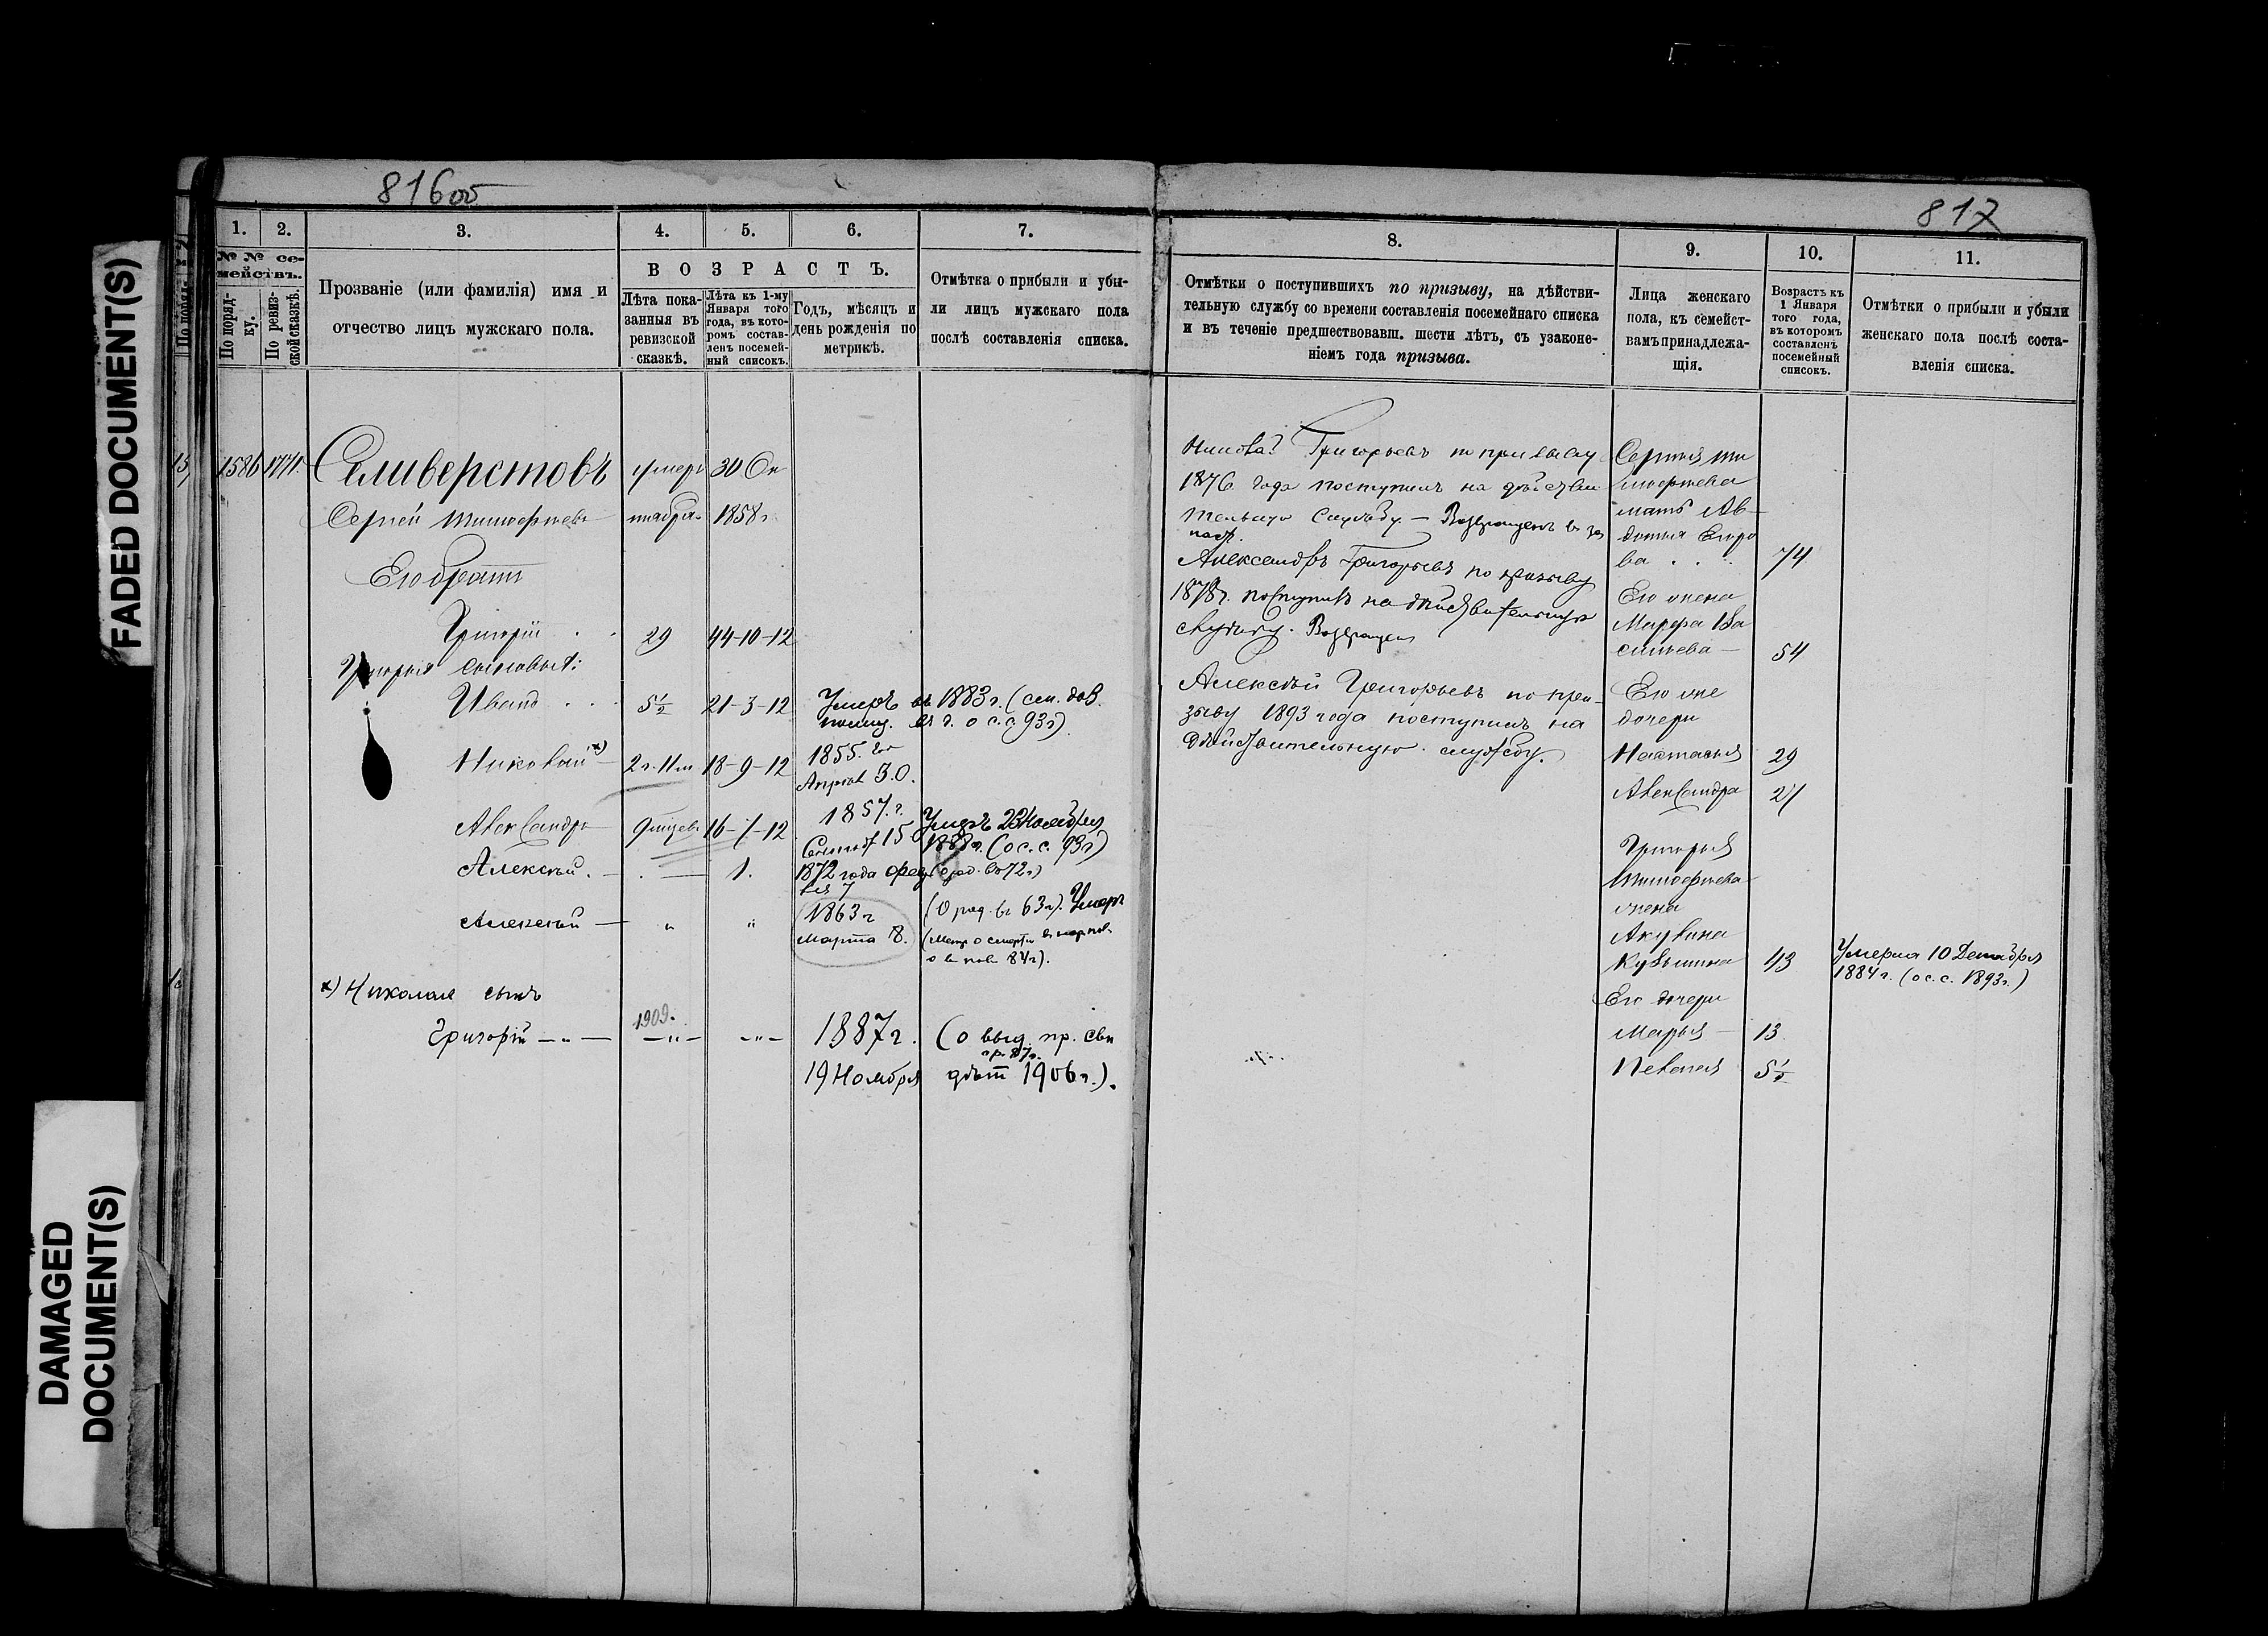 FADED DOCUMENT(S)
DAMAGED
DOCUMENT(S)
816об
1. 2. 3. 4. 5. 6. 7.
№ № се-
мействъ.
По поряд-
ку.
По ревиз-
ской сказкѣ.
Прозваніе (или фамилія) имя и
отчество лицъ мужскаго пола.
ВОЗРАСТЪ.
Лѣта пока-
занныя въ
ревизской
сказкѣ.
Лѣта къ 1-му
Января того
года, въ кото-
ромъ состав-
ленъ посемей-
ный списокъ.
Годъ, мѣсяцъ и
день рожденія по
метрикѣ.
Отмѣтка о прибыли и убы-
ли лицъ мужскаго пола
послѣ составленія списка.
1586 1771. Селиверстовъ умеръ 30 Ок
Сергей Тимофѣевъ тября 1858 г.
Его братъ
Григорій . . 29 44-10-12
Григорья сыновья:
Иванъ . . . 5½ 21-3-12 Умеръ въ 1883 г. (сем. дов.
въ г. о с. с 93 г)
Николай х) 2 г. 11 м 18-9-12 1855. го
Апрѣл 30.
Александръ 9 мѣсев. 16-7-12 1857. г. Умеръ 28 Ноября
Сентяб 15 1888 г. (о с. с. 93 г)
Алексѣй . — 1. 1872 года февр (о род. въ 72 г)
ля 7
Алексѣй — " " 1863 г (О род. въ 63 г). Умеръ
Марта 8. (Метр о смерти
84 г).
х) Николая сынъ
1909.
Григорій — " — — " — — " — 1887 г. (о выд. пр. сви
пр. 87 г.
19 Ноября дѣт 1906 г.).
817
8. 9. 10. 11.
Отмѣтки о поступившихъ по призыву, на дѣйстви-
тельную службу со времени составленія посемейнаго списка
и въ теченіе предшествовавш. шести лѣтъ, съ узаконе-
ніемъ года призыва.
Лица женскаго
пола, къ семейст-
вамъ принадлежа-
щія.
Возрастъ къ
1 Января
того года,
въ которомъ
составленъ
посемейный
списокъ.
Отмѣтки о прибыли и убыли
женскаго пола послѣ соста-
вленія списка.
Николай Григорьевъ по призыву
1876 года поступилъ на дѣйстви
тельную службу. — Возвращенъ въ за
пасъ.
Александръ Григорьевъ по призыву
1878 г. поступилъ на дѣйствительную
службу. Возвращенъ
Алексѣй Григорьевъ по при-
зыву 1893 года поступилъ на
дѣйствительную службу.
Сергѣя Ти
мофѣева
мать Ав-
дотья Егоро
ва . . . 74
Его жена
Марфа Ва
сильева — 54
Его же
дочери
Настасья 29
Александра 27
Григорья
Тимофѣева
жена
Акулина
Кузьмина 43 Умерла 10 Декабря
1884 г. (о с. с. 1893 г.)
Его дочери
Марья — 13.
Пелагея 5½